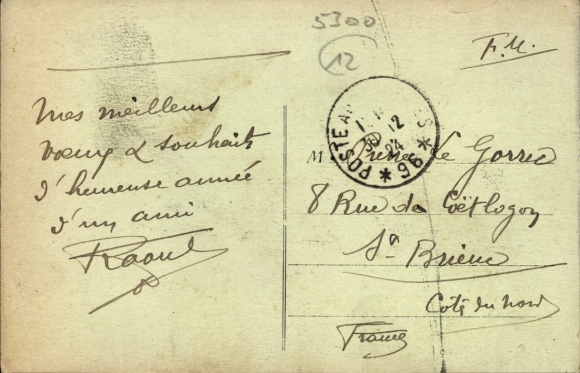 5300
12
F.M.
Mes meilleurs
voeux & souhaits
d'heureuse année
d'un ami
Raoul
POSTE AUX ARMÉES
30 12
24
* 96 *
M Pierre Le Gorrec
8 Rue de Coëtlogon
St Brieuc
Côtes du Nord
France